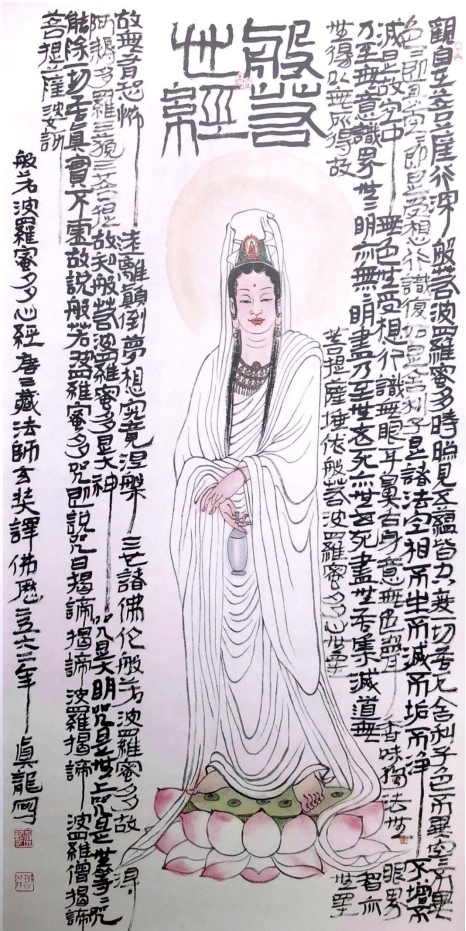 般若
心經
觀自在菩薩行深般若波羅蜜多時照見五蘊皆空度一切苦厄舍利子色不異空空不異
色色即是空空即是色受想行識復如是舍利子是諸法空相不生不滅不垢不淨不增不
減是故空中無色無受想行識無眼耳鼻舌身意無色聲香味觸法無眼界
乃至無意識界無無明亦無無明盡乃至無老死亦無老死盡無苦集滅道無智亦
無得以無所得故
菩提薩埵依般若波羅蜜多故心無罣
無罣
故無有恐怖遠離顛倒夢想究竟涅槃三世諸佛依般若波羅蜜多故得
阿耨多羅三藐三菩提故知般若波羅蜜多是大神咒是大明咒是無上咒是無等等咒
能除一切苦真實不虛故說般若波羅蜜多咒即說咒曰揭諦揭諦波羅揭諦波羅僧揭諦
菩提薩婆訶
般若波羅蜜多心經唐三藏法師玄奘譯佛曆二五六二年真龍